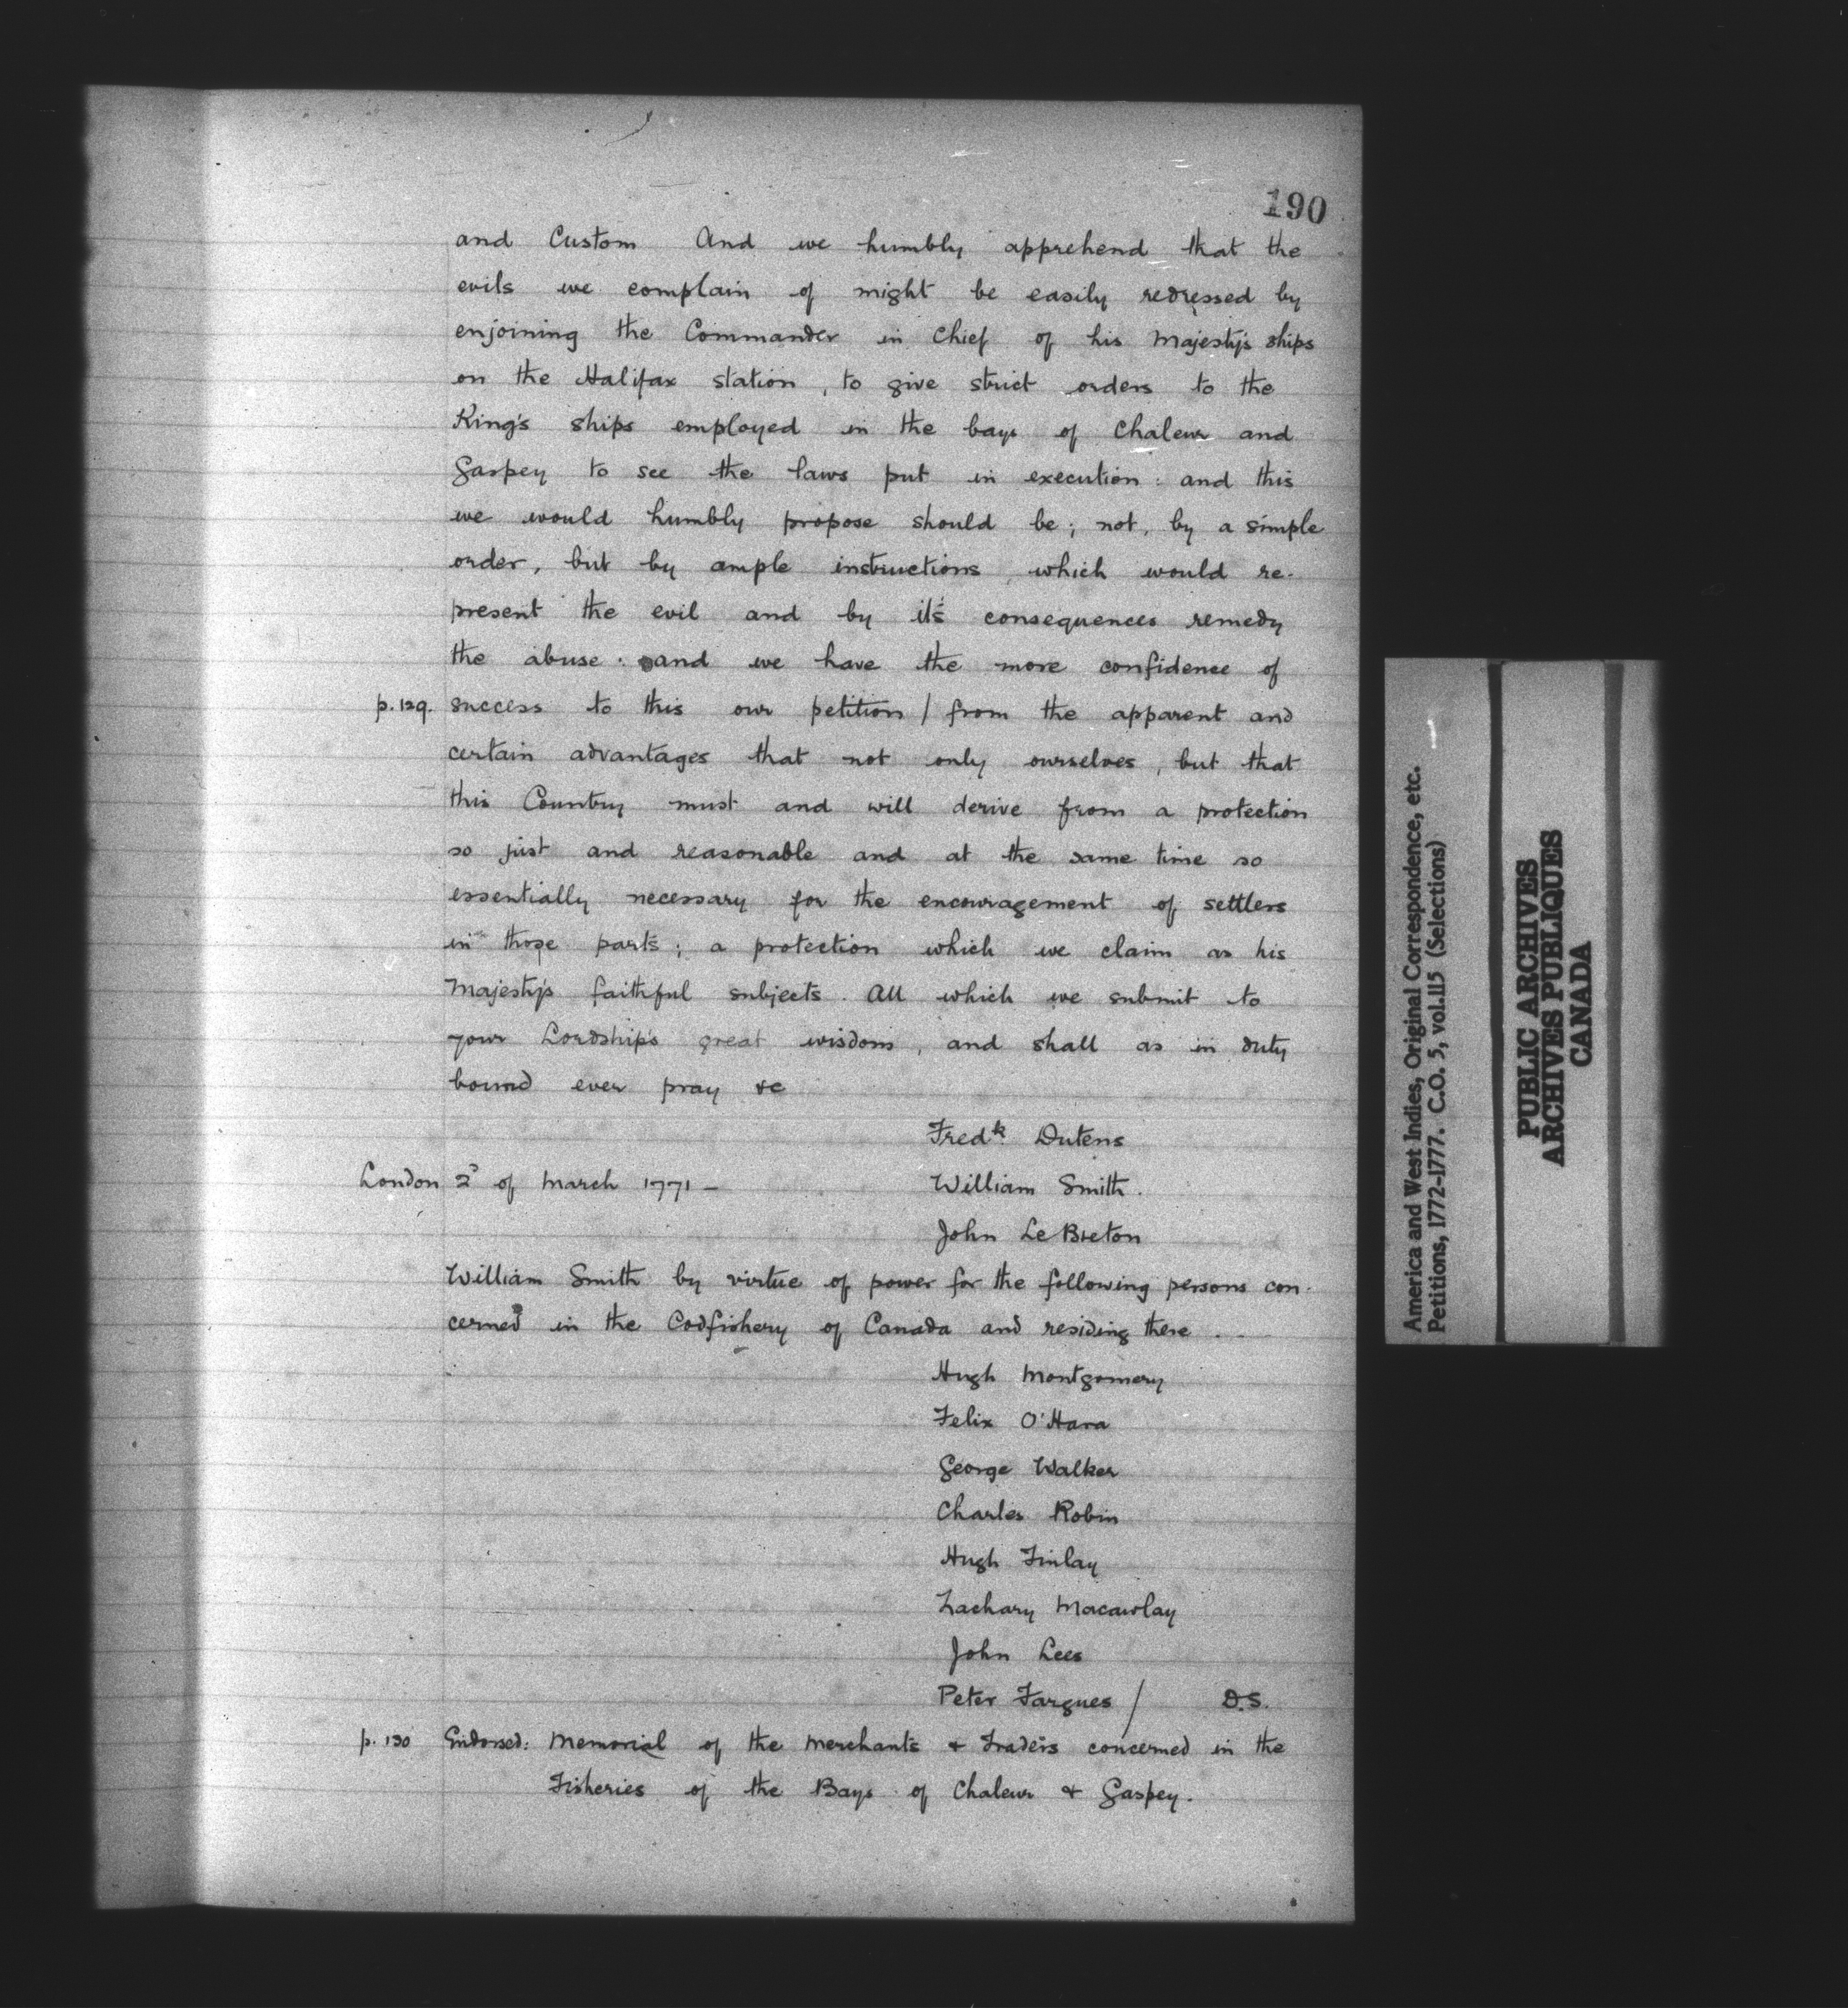 190
and Custom And we humbly apprehend that the
evils we complain of might be easily redressed by
enjoining the Commander in Chief of his Majesty's ships
on the Halifax station, to give strict orders to the
King's ships employed in the bays of Chaleur and
Gaspey to see the laws put in execution: and this
we would humbly propose should be; not, by a simple
order, but by ample instructions, which would re-
present the evil and by its consequences remedy
the abuse: and we have the more confidence of
p. 129. success to this our petition / from the apparent and
certain advantages that not only ourselves, but that
this Country must and will derive from a protection
so just and reasonable and at the same time so
essentially necessary for the encouragement of settlers
in those parts; a protection which we claim as his
Majesty's faithful subjects. All which we submit to
your Lordship's great wisdom, and shall as in duty
bound ever pray &c
Fredk Dutens
London 2d of March 1771 – William Smith.
John Le Breton
William Smith by virtue of power for the following persons con-
cerned in the Codfishery of Canada and residing there.
Hugh Montgomery
Felix O'Hara
George Walker
Charles Robin
Hugh Finlay
Zachary Macawlay
John Lees
Peter Fargues / D.S.
p. 130 Endorsed: Memorial of the Merchants & Traders concerned in the
Fisheries of the Bays of Chaleur & Gaspey.
America and West Indies, Original Correspondence, etc.
Petitions, 1772-1777. C.O. 5, vol.115 (Selections)
PUBLIC ARCHIVES
ARCHIVES PUBLIQUES
CANADA